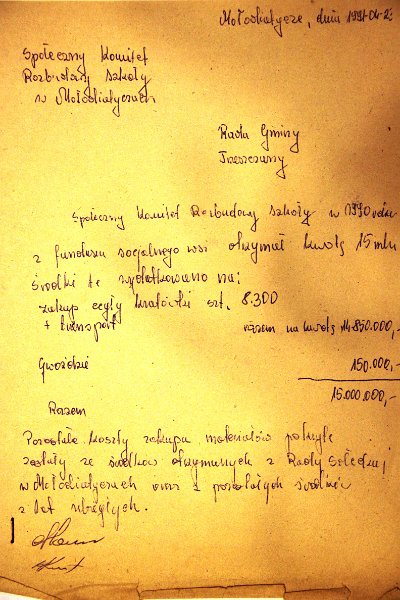 Mołodiatycze, dnia 1991-04-2
Społeczny Komitet
Rozbudowy Szkoły
w Mołodiatyczach
Rada Gminy
Trzeszczany
Społeczny Komitet Rozbudowy szkoły w 1990 roku
z funduszu socjalnego wsi otrzymał kwotę 15 mln
środki te wydatkowano na:
zakup cegły kratówki szt. 8.300
+ transport razem na kwotę 14.850.000,-
Gwoździe 150.000,-
15.000.000,-
Razem
Pozostałe koszty zakupu materiałów pokryte
zostały ze środków otrzymanych z Rady Sołeckiej
w Mołodiatyczach oraz z pozostałych środków
z lat ubiegłych.